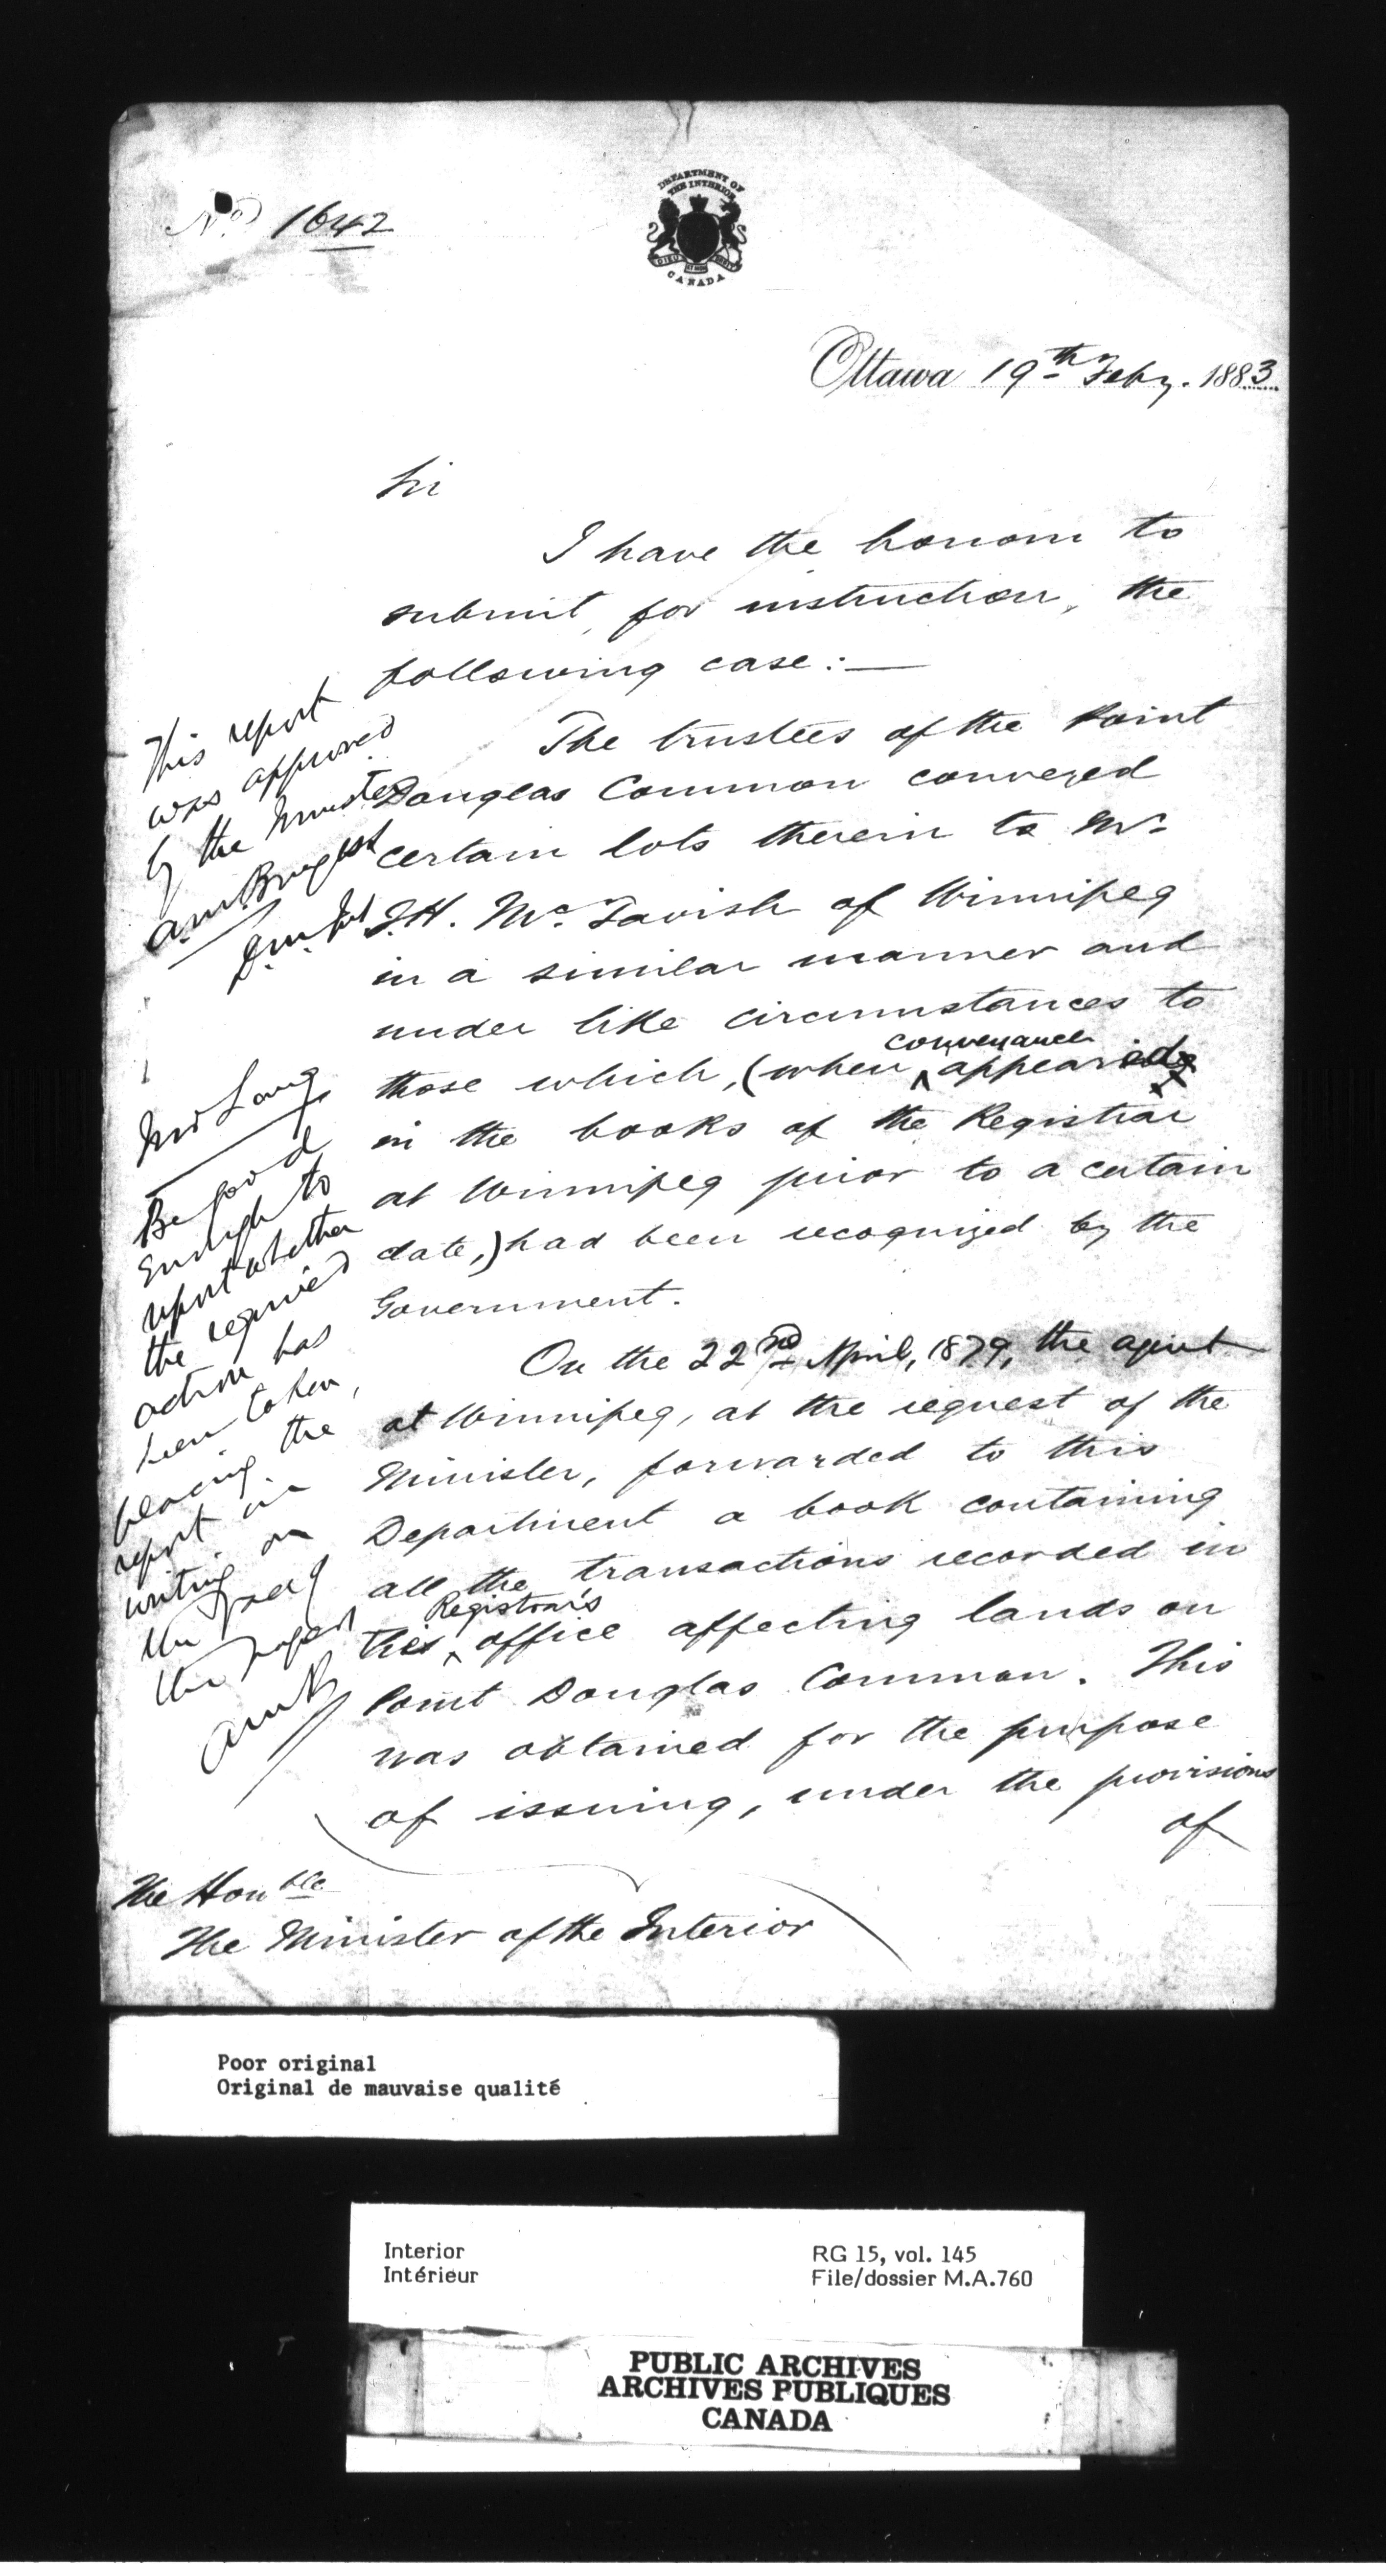 No. 1642
DEPARTMENT OF
THE INTERIOR
CANADA
Ottawa 19th Feby. 1883
Sir
I have the honour to
submit, for instruction, the
following case:—
The trustees of the Point
Douglas Common conveyed
certain lots therein to Mr.
J.H. McTavish of Winnipeg
in a similar manner and
under like circumstances to
those which, (when conveyances appeared
in the books of the Registrar
at Winnipeg prior to a certain
date,) had been recognized by the
Government.
On the 22nd April, 1879, the agent
at Winnipeg, at the request of the
Minister, forwarded to this
Department a book containing
all the transactions recorded in
the Registrar's office affecting lands on
Point Douglas Common. This
was obtained for the purpose
of issuing, under the provisions
of
The Honble
The Minister of the Interior
This report
was approved
by the Minister
A.M. Burgess
D.M. Int
Mr Lang
Be good
enough to
report whether
the required
action has
been taken,
placing the
report in
writing on
the
the report
AMB
Poor original
Original de mauvaise qualité
Interior
Intérieur
RG 15, vol. 145
File/dossier M.A.760
PUBLIC ARCHIVES
ARCHIVES PUBLIQUES
CANADA